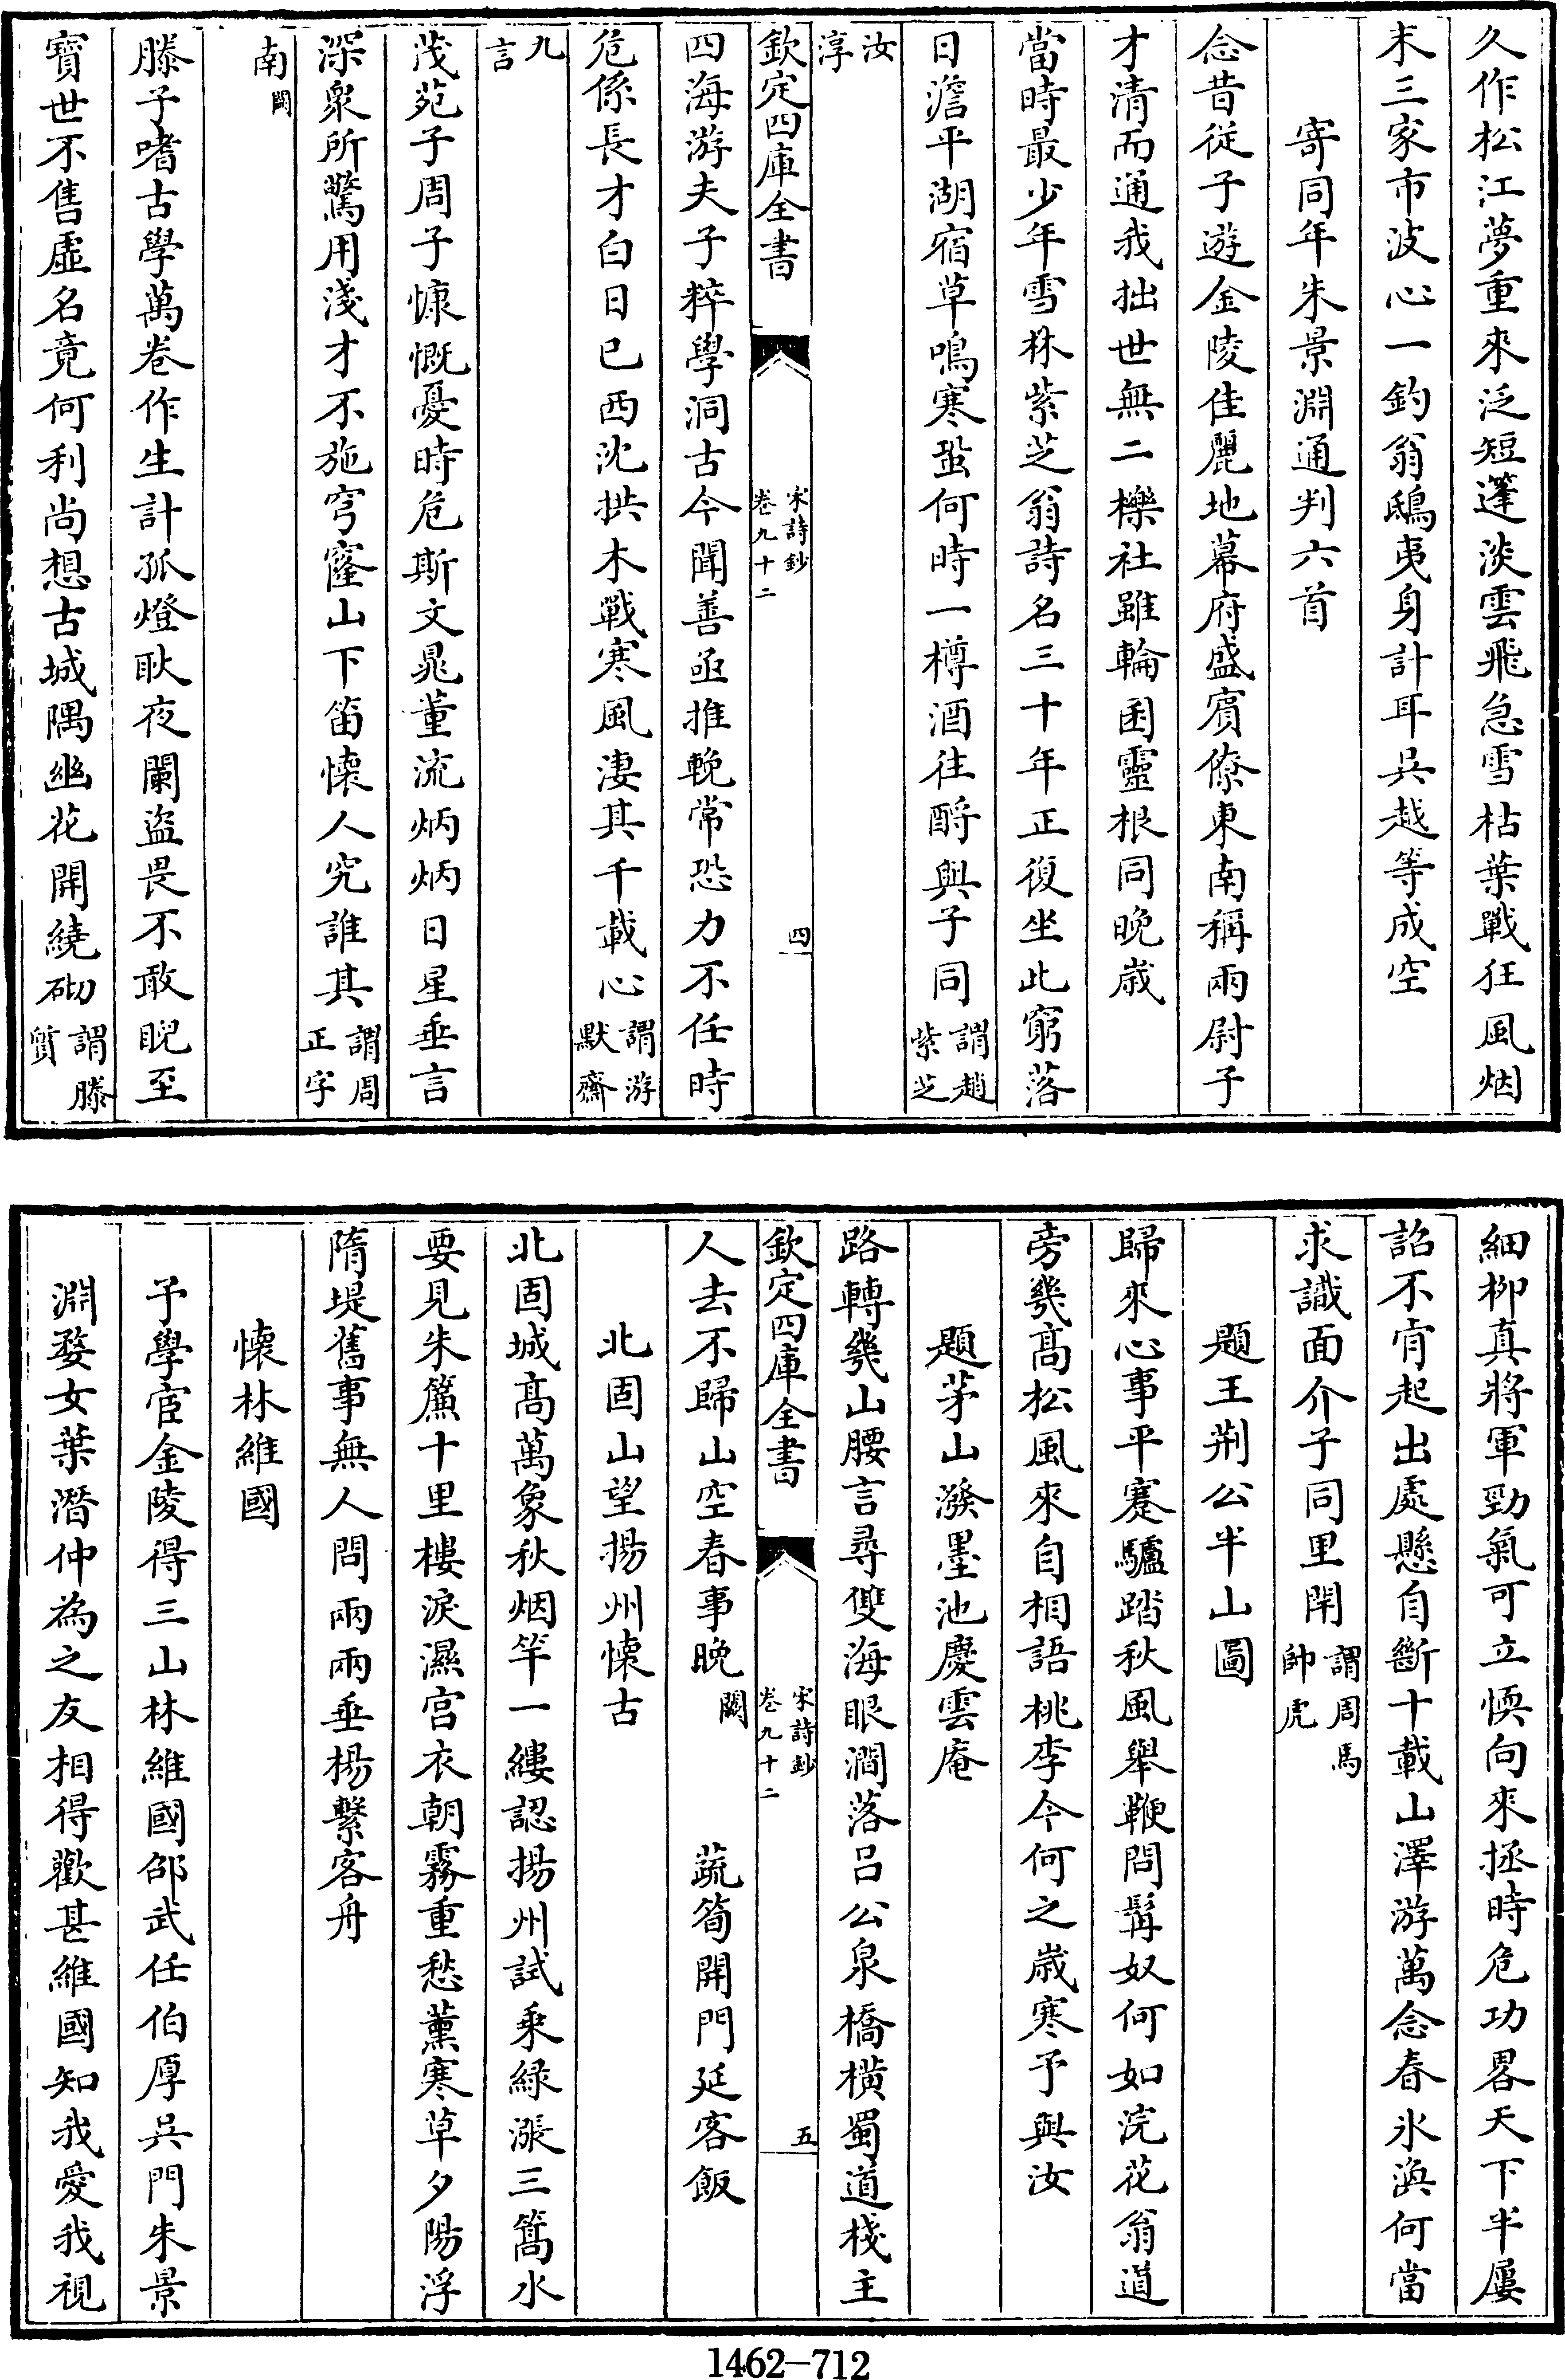 久作松江夢重來泛短篷淡雲飛急雪枯葉戰狂風烟
末三家市波心一釣翁鴟夷身計耳吳越等成空
寄同年朱景淵通判六首
念昔從子遊金陵佳麗地幕府盛賓僚東南稱兩尉子
才清而通我拙世無二櫟社雖輪囷靈根同晚歲
當時最少年雪林紫芝翁詩名三十年正復坐此窮落
日澹平湖宿草鳴寒蛩何時一樽酒往酹與子同謂趙紫芝
汝淳
欽定四庫全書
宋詩鈔
卷九十二
四
四海游夫子粹學洞古今聞善亟推輓常恐力不任時
危係長才白日已西沈拱木戰寒風淒其千載心謂游默齋
九言
茂苑子周子慷慨憂時危斯文晁董流炳炳日星垂言
深衆所驚用淺才不施穹窿山下笛懷人究誰其謂周正字
南闕
滕子嗜古學萬卷作生計孤燈耿夜闌盜畏不敢睨至
寶世不售虛名竟何利尚想古城隅幽花開繞砌謂滕質
細柳真將軍勁氣可立愞向來拯時危功畧天下半屢
詔不肯起出處懸自斷十載山澤游萬念春氷渙何當
求識面介子同里閈謂周馬帥虎
題王荆公半山圖
歸來心事平蹇驢踏秋風舉鞭問髯奴何如浣花翁道
旁幾高松風來自相語桃李今何之歲寒予與汝
題茅山潑墨池慶雲庵
路轉幾山腰言尋雙海眼澗落呂公泉橋橫蜀道棧主
欽定四庫全書
宋詩鈔
卷九十二
五
人去不歸山空春事晚闕蔬筍開門延客飯
北固山望揚州懷古
北固城髙萬象秋烟竿一縷認揚州試乘綠漲三篙水
要見朱簾十里樓淚濕宫衣朝霧重愁薰寒草夕陽浮
隋堤舊事無人問兩兩垂楊繫客舟
懷林維國
予學宦金陵得三山林維國邵武任伯厚吳門朱景
淵婺女葉潛仲為之友相得歡甚維國知我愛我視
1462-712